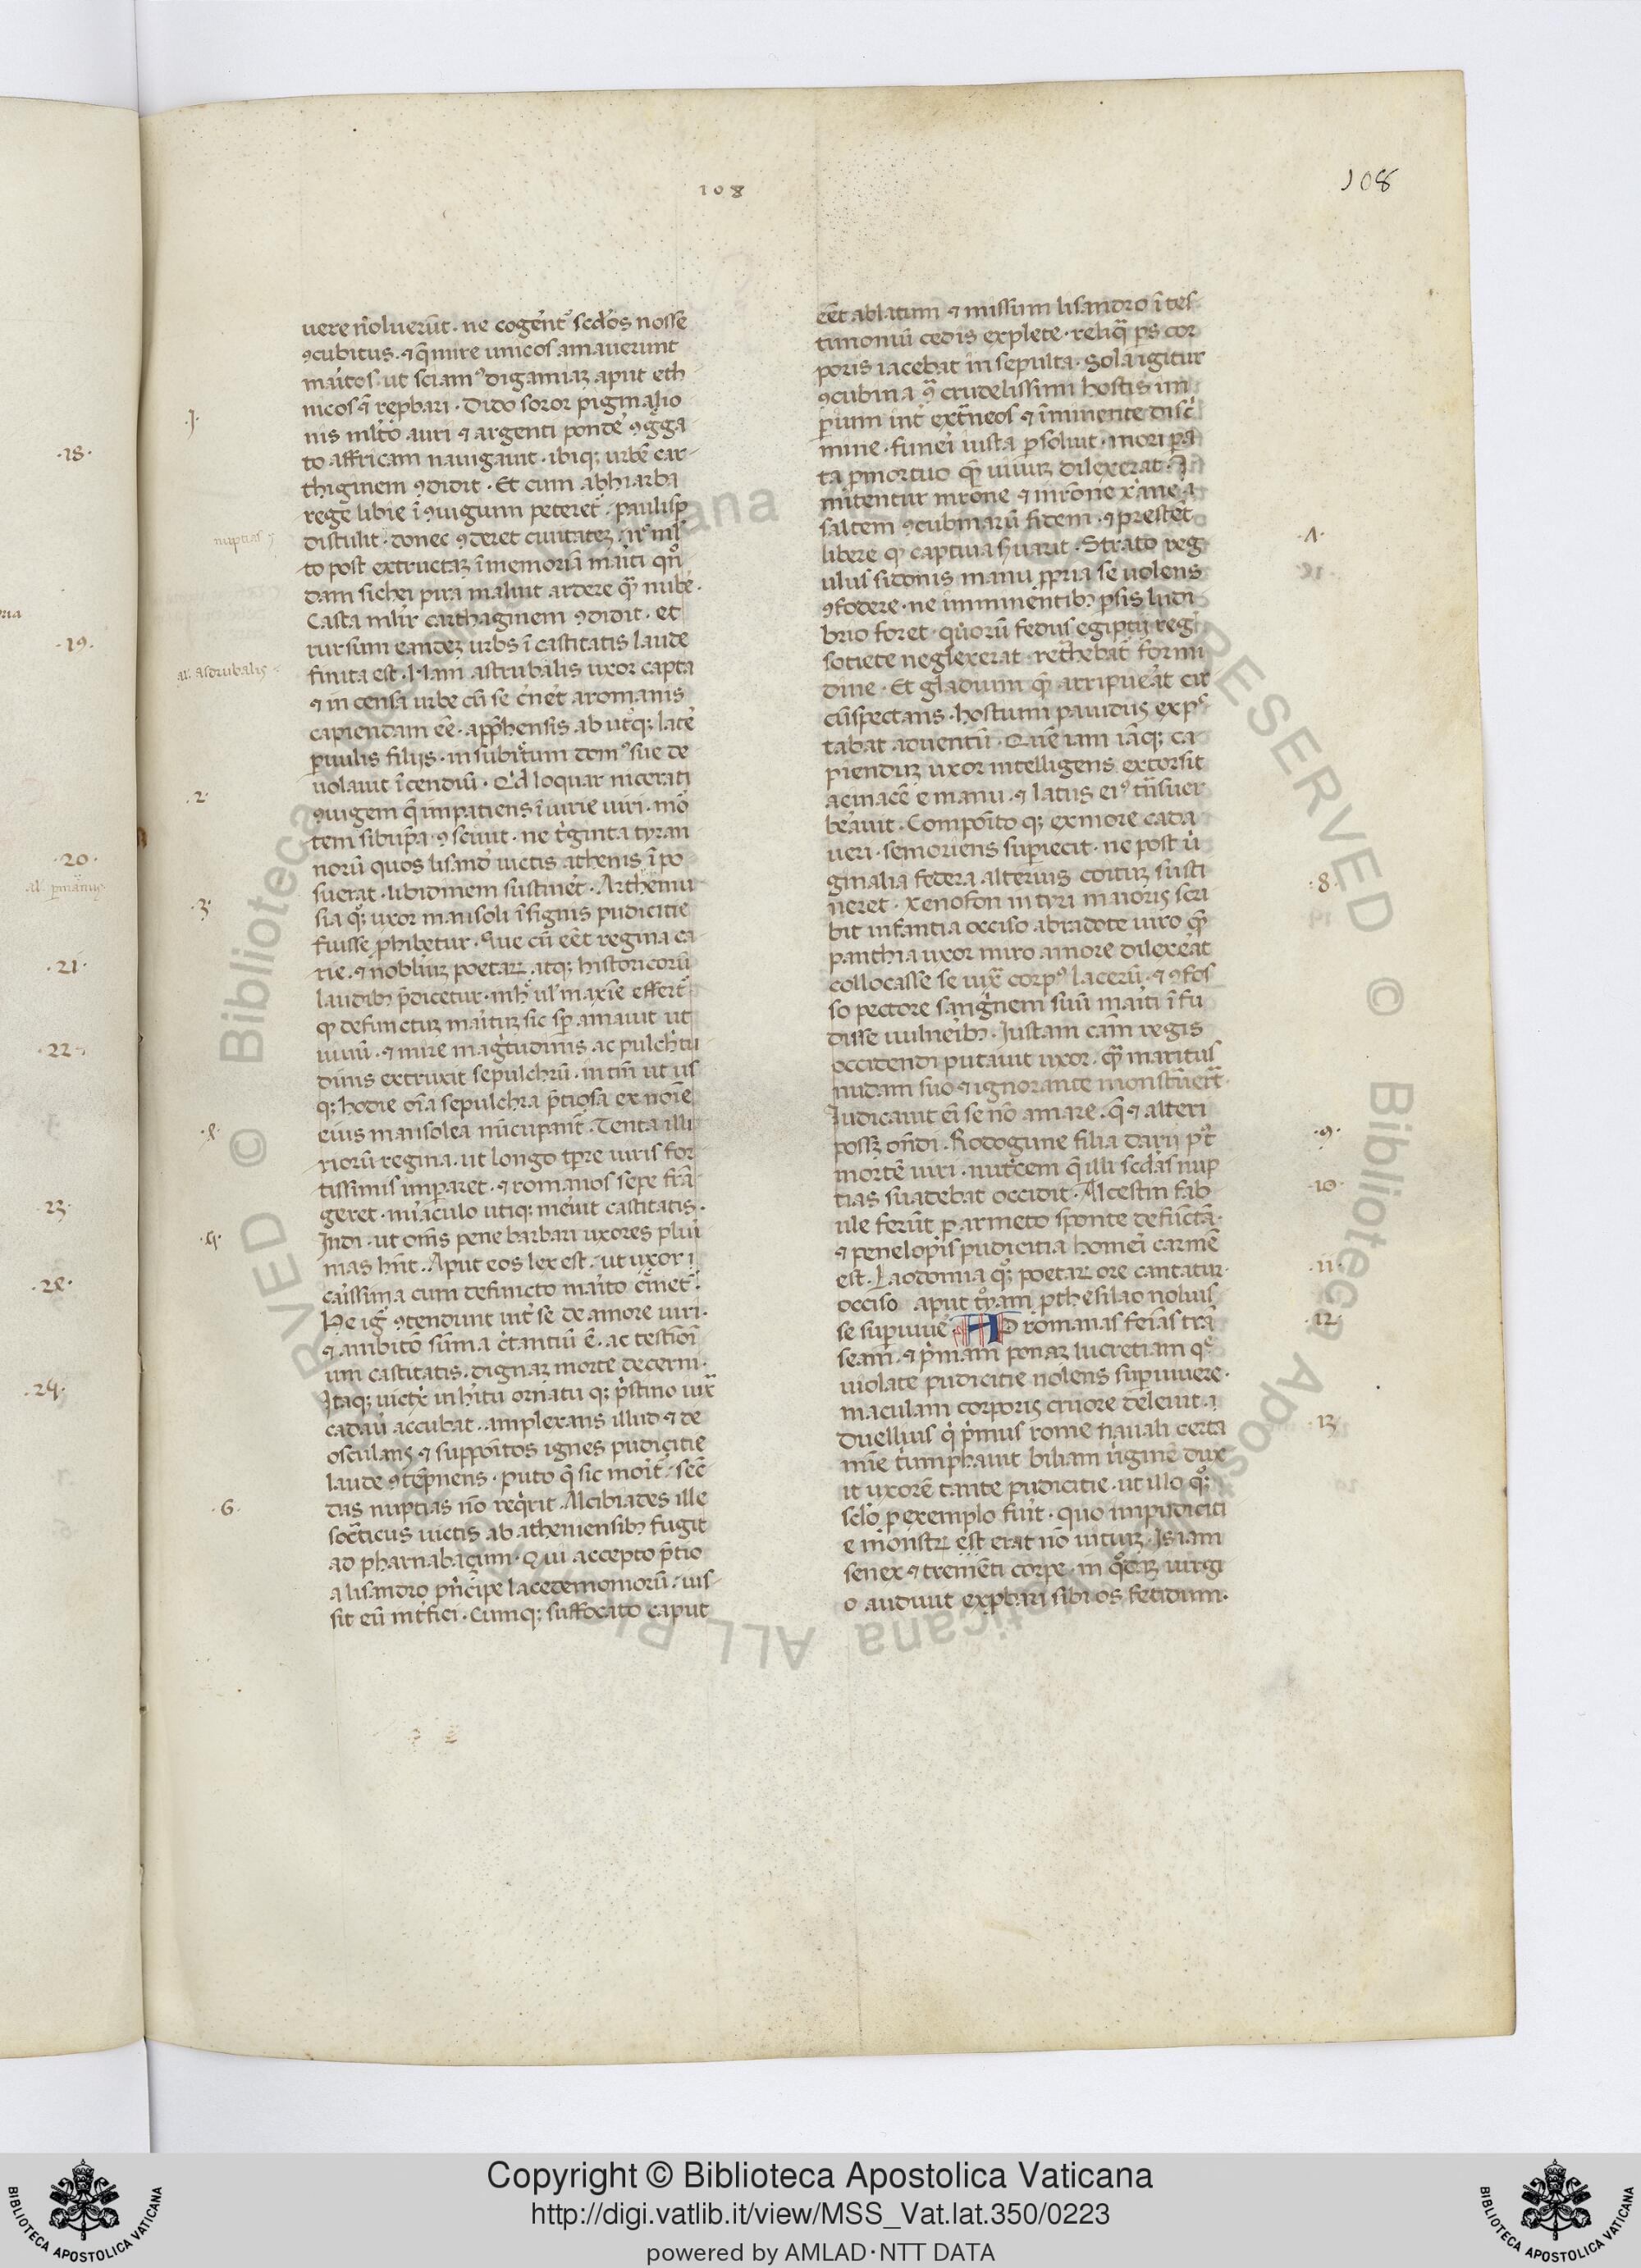 108
108
uere noluerūt · ne cogerent᷒ scd̓os nosse
ꝯcubitus · ⁊ q̄ mire unicos amauerunt
maritos · ut sciamꝰ digamiaꝫ aput eth
nicos ēt rep̱bari · Dido soror pigmalio
nis mlto auri ⁊ argenti ponde̓ ꝯg̃ga
to affricam nauigauit · ibiqꝫ urbē car
thaginem ꝯdidit · Et cum ab hiarba
rege libie ī ꝯiugium peteret᷒ · paulisꝑ
distulit · donec ꝯderet ciuitateꝫ · nec ml
to post extructaꝫ ī memoriā mariti qn̄
dam sichei pira maluit ardere qꝫ̄ nube̓ ·
Casta mulier carthaginem ꝯdidit · et
rursum eadeꝫ urbs ī castitatis laude
finita est · Nam astrubalis uxor capta
⁊ incensa urbe cū se cerneret a romanis
capiendam eē · app̃hensis ab utroqꝫ late̓
ꝑuulis filiis · in subiectum domꝰ sue de
uolauit īcendiū · Qd̓ loquar nicerati
ꝯiugem q̄ impatiens īiurie uiri · mor
tem sibi ip̄a ꝯsciuit · ne triginta tyran
norū quos lisand̓ uictis athenis īpo
suerat · libidinem sustineret · Arthemi
sia qꝫ uxor mausoli īsignis pudicitie
fuisse ꝑhibetur · Que cū eēt regina ca
rie · ⁊ nobiliuꝫ poetaꝝ atqꝫ historicorū
laudibꝫ p̄dicetur · in hͦ uel maxie effert᷒
qꝫ defunctuꝫ marituꝫ sic sꝑ amauit ut
uiuū · ⁊ mire magnitudinis ac pulchritu
dinis extruxit sepulchrū · in tm̄ ut us
qꝫ hodie oīa sepulchra p̄ciosa ex noīe
eius mausolea nūcupant᷒ · Teuta illi
riorū regina · ut longo tꝑe uiris for
tissimis imꝑaret · ⁊ romanos sepe frā
geret · miraculo utiqꝫ meruit castitatis ·
Indi · ut om̄s pene barbari uxores pluri
mas hn̄t · Aput eos lex est · ut uxor
carissima cum defuncto marito cremet᷒ ·
He ig̓ ꝯtendunt inter se de amore uiri ·
⁊ ambitō sūma certantiū ē · ac testīoni
um castitatis · dignaꝫ morte decerni ·
Itaqꝫ uictrix in hitu ornatu qꝫ p̓stino iux̄
cadauer accubat · amplexans illud ⁊ de
osculans · ⁊ suppositos ignes pudicitie
laude ꝯtēpnens · puto q̄ sic morit᷒ · secū
das nuptias nō req̓rit · Alcibiades ille
socraticus uictis ab atheniensibꝫ fugit
ad pharnabaçum · Qui accepto p̄tio
a lisandro principe lacedemoniorū · ius
sit eū interfici · Cumqꝫ suffocato caput
eēt ablatum ⁊ missum lisandro ī tes
timoniū cedis explete · reliqua pars cor
poris iacebat in sepulta · Sola igitur
ꝯcubina ꝯtra crudelissimi hostis im
ꝑium int̓ ext̃neos ⁊ īminente discri
mine · funeri iusta ꝑsoluit · mori pa
ta ꝓ mortuo quē uiuuꝫ dilexerat ·
mitentur matrone ⁊ matrone xp̄iane
saltem ꝯcubinarū fidem · ⁊ prestent
libere qꝫ captiua seruauit · Strato reg
ulus sidonis manu ꝓpria se uolens
ꝯfodere · ne imminentibꝫ ꝑsis ludi
brio foret · quorū fedus egiptii regis
societate neglexerat · retrahebat᷒ formi
dine · Et gladium quē arripuerat cir
cūspectans · hostium pauidus expc
tabat aduentū · Quē iam iāqꝫ ca
pienduꝫ uxor intelligens extorsit
acinacē e manu · ⁊ latus eiꝰ tn̄suer
berauit · Composito qꝫ ex more cada
ueri · se moriens suꝑiecit · ne post uir
ginalia federa alterius coituꝫ susti
neret · Xenofon in cyri maioris scri
bit infantia occiso abradote uiro quē
panthia uxor miro amore dilexerat
collocasse se iux̄ corpꝰ lacerū · ⁊ ꝯfos
so pectore sanguinem suū mariti īfu
disse uulneribꝫ · Iustam cām regis
occidendi putauit uxor · quā maritus
nudam suo ⁊ ignorante monstrauerat ·
Iudicauit enī se nō amare · q̄ ⁊ alteri
posset ondi · Rodogune filia darii post
mortē uiri · nutricem q̄ illi scd̓as nup
tias suadebat occidit · Alcestin fab
ule ferūt ꝓ armeto sponte defunctā ·
⁊ penelopis pudicitia homeri carmē
est · Laodomia qꝫ poetaꝝ ore cantatur ·
occiso aput troyam ꝓthesilao noluis
se suꝑuiue̓ · AD romanas feīas trā
seam · ⁊ primam ponaꝫ lucretiam que
uiolate pudicitie nolens suꝑuiuere ·
maculam corporis cruore deleuit ·
Duellius q̓ primus rome nauali certa
mine triumphauit biliam uirginē dux
it uxorē tante pudicitie · ut illo qꝫ
sclo ꝓ exemplo fuerit · quo impudiciti
e monstꝝ est erat nō uitiuꝫ · Is iam
senex ⁊ trementi corpe · in quodaꝫ iurgi
o audiuit exprobari sibi os fetidum ·
· 1 ·
nuptias
al' asdrubalis
· 2 ·
· 3 ·
· 6 ·
· 8 ·
· 9 ·
· 10 ·
· 11 ·
· 12 ·
· 13 ·
· 18 ·
· 19 ·
· 20 ·
· 21 ·
· 22 ·
· 23 ·
Copyright © Biblioteca Apostolica Vaticana
http://digi.vatlib.it/view/MSS_Vat.lat.350/0223
powered by AMLAD·NTT DATA
BIBLIOTECA APOSTOLICA VATICANA
BIBLIOTECA APOSTOLICA VATICANA